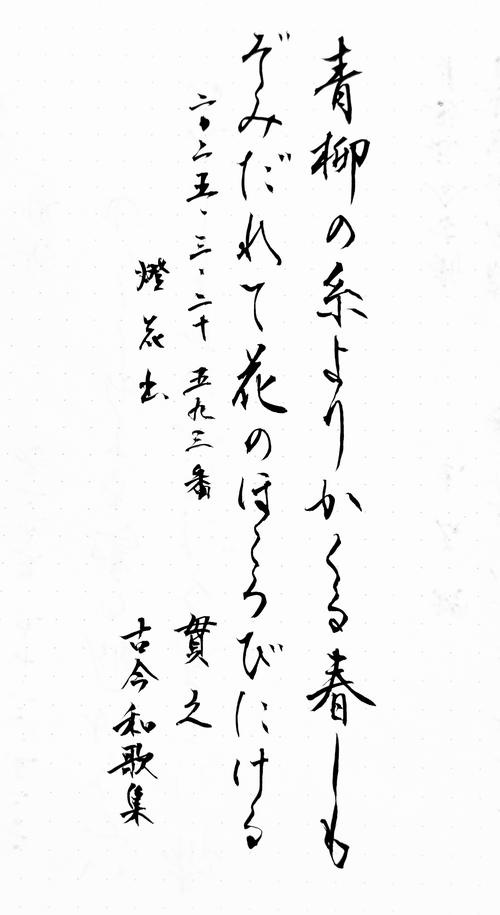 青柳の糸よりかくる春しも
ぞみだれて花のほころびにける
二〇二五、三、二十 五九三番
貫之
燈花書
古今和歌集